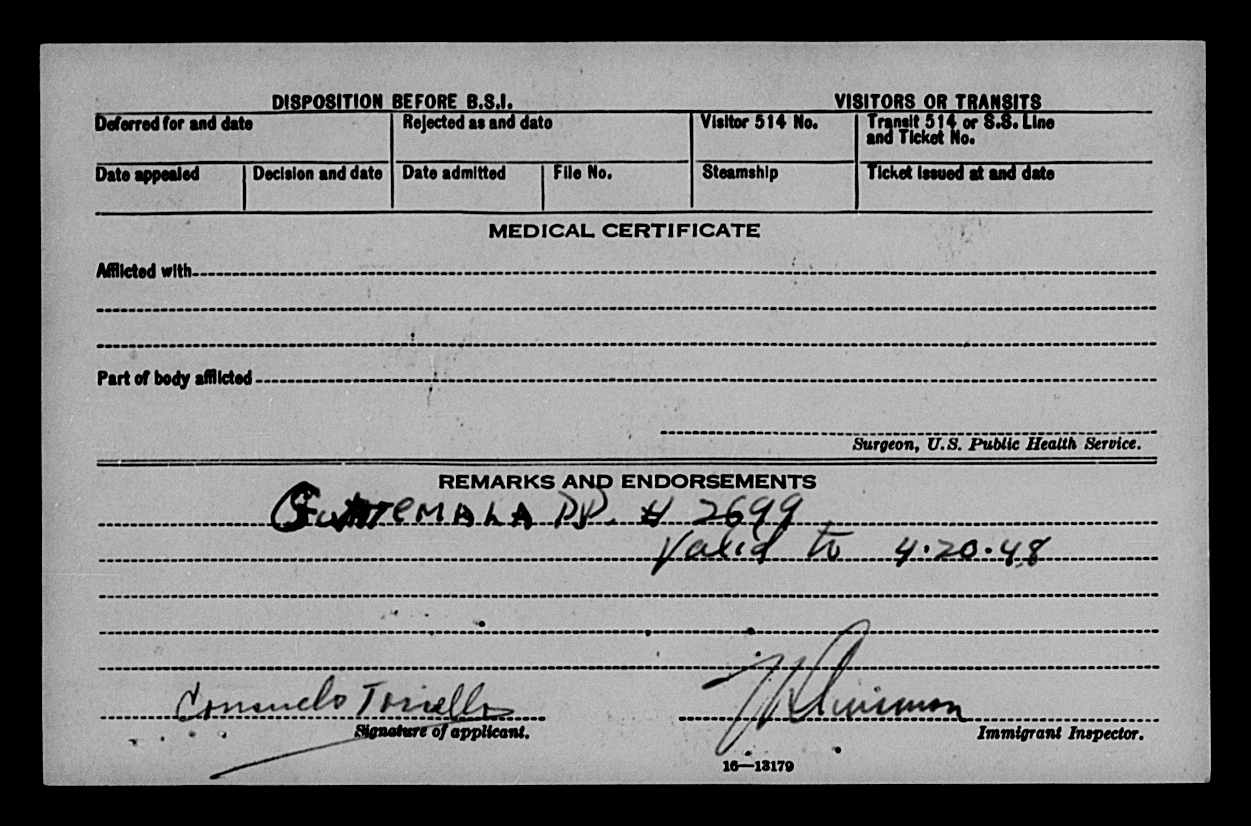 DISPOSITION BEFORE B.S.I.
VISITORS OR TRANSITS
Deferred for and date
Rejected as and date
Visitor 514 No.
Transit 514 or S.S. Line
and Ticket No.
Date appealed
Decision and date
Date admitted
File No.
Steamship
Ticket issued at and date
MEDICAL CERTIFICATE
Afflicted with
Part of body afflicted
Surgeon, U.S. Public Health Service.
REMARKS AND ENDORSEMENTS
GUATEMALA PP. # 2699
Valid to 4.20.48
Consuelo Toriello
Signature of applicant.
Immigrant Inspector.
16—13179